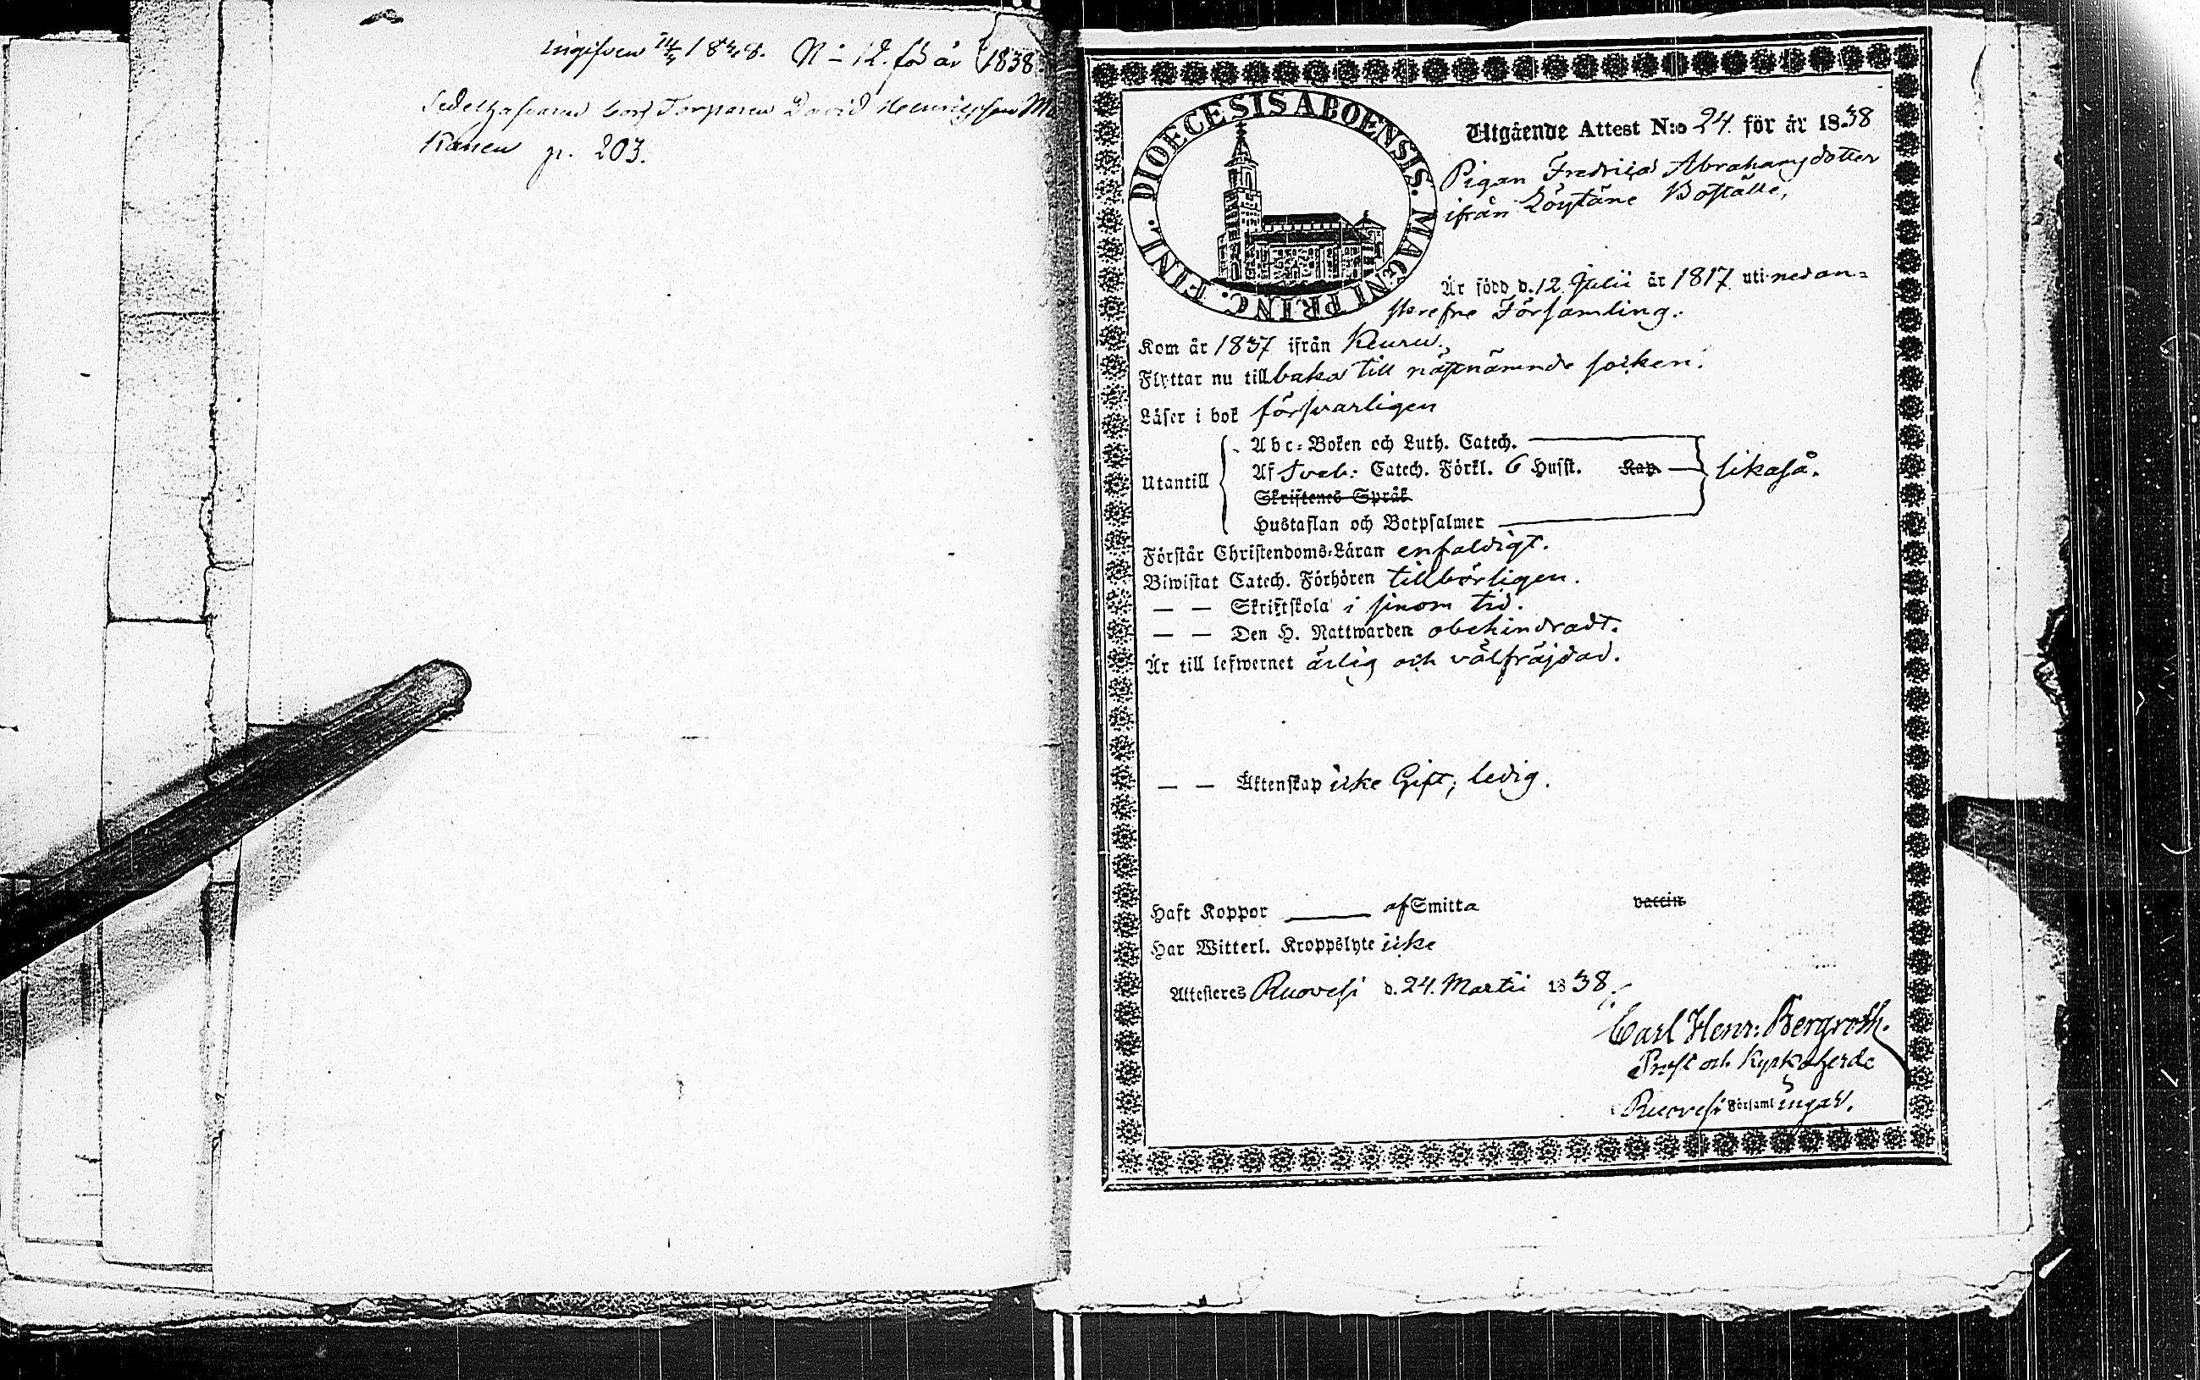 ingifven 14/4 1838. N:o 12. för år 1838
Sedelhafvaren hos Torparen David Henricsson
p. 203.
DIOECESIS ABOENSIS. MAGNI PRINC. FINL.
Utgående Attest N:o 24. för år 1838
Pigan Fredrica Abrahamsdotter
ifrån Löytäne Boställe,
Är född d. 12 Julii år 1817 uti nedan=
skrefne Församling.
Kom år 1837 ifrån Keuru.
Flyttar nu tillbaka till nästnämnde socken.
Läser i bok försvarligen
Utantill
Abc-Boken och Luth. Catech.
Af Sveb: Catech. Förkl. 6 Husst. Kap.
likaså.
Skriftenes Språk
Hustaflan och Botpsalmer
Förstår Christendoms-Läran enfaldigt.
Biwistat Catech. Förhören tillbörligen.
— — Skriftskola i sinom tid.
— — Den H. Nattwarden obehindradt.
Är till lefwernet ärlig och välfräjdad.
— — Äktenskap icke Gift; ledig.
Haft Koppor af Smitta vaccin
Har Witterl. Kroppslyte icke
Attesteres Ruovesi d. 24. Martii 1838.
Carl Henr: Bergroth.
Prost och Kyrkoherde
i Ruovesi Församlingar.